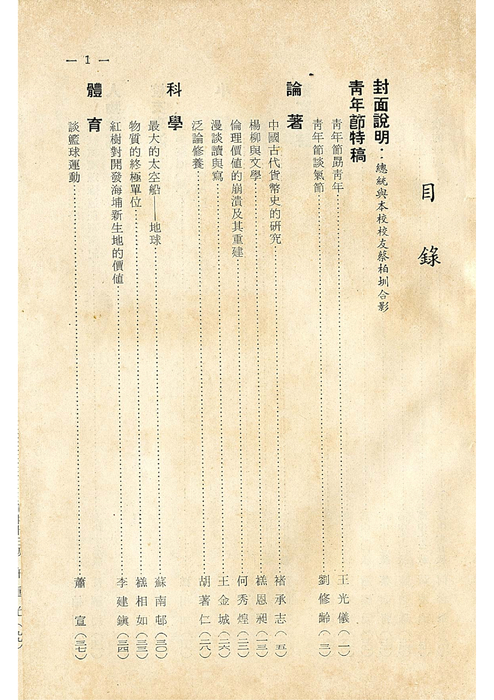 目錄
封面說明：總統與本校校友蔡柏圳合影
青年節特稿
青年節勗青年……王光儀（一）
青年節談氣節……劉修齡（三）
論著
中國古代貨幣史的研究……褚承志（五）
楊柳與文學……褟恩昶（一三）
倫理價值的崩潰及其重建……何秀煌（二二）
漫談讀與寫……王金城（二六）
泛論修養……胡著仁（二八）
科學
最大的太空船——地球……蘇南邨（三〇）
物質的終極單位……褟相如（三三）
紅樹對開發海埔新生地的價值……李建鎮（三四）
體育
談籃球運動……蕭　宣（三七）
— 1 —